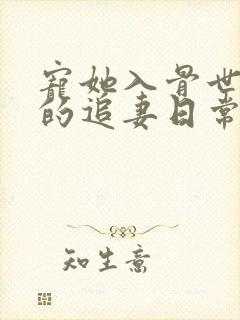 宠她入骨世
的追妻日常
知生意